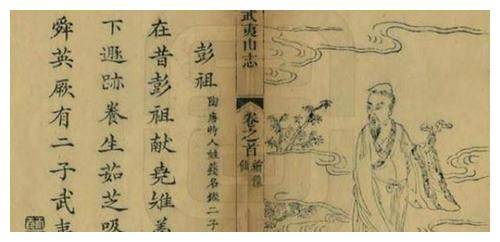 武夷山志
卷之首
繪像
彭祖 陶唐時人姓籛名鏗二子
在昔彭祖献堯雉羹
下遯跡養生茹芝吸
舜英厥有二子武夷